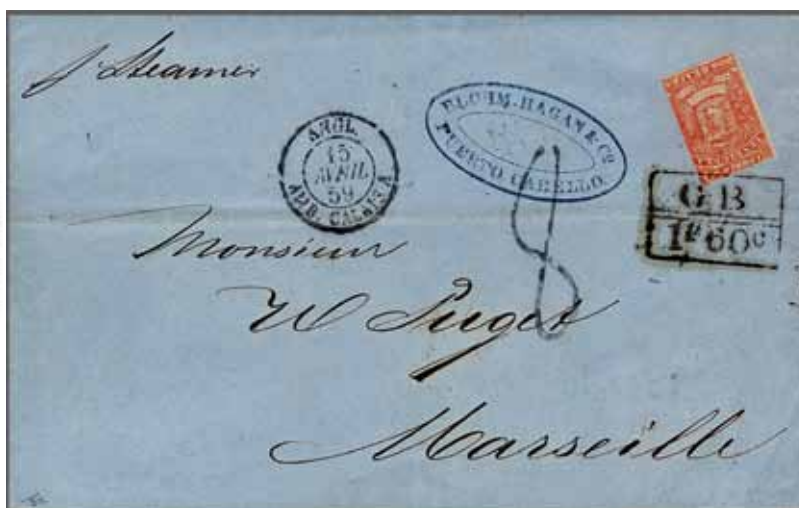 p Steamer
ANGL.
15
AVRIL
59
AMB. CALAIS A
BLOHM. HAGAN & Cº
PUERTO CABELLO
8
G B
1F 60c
Monsieur
W Puget
Marseille